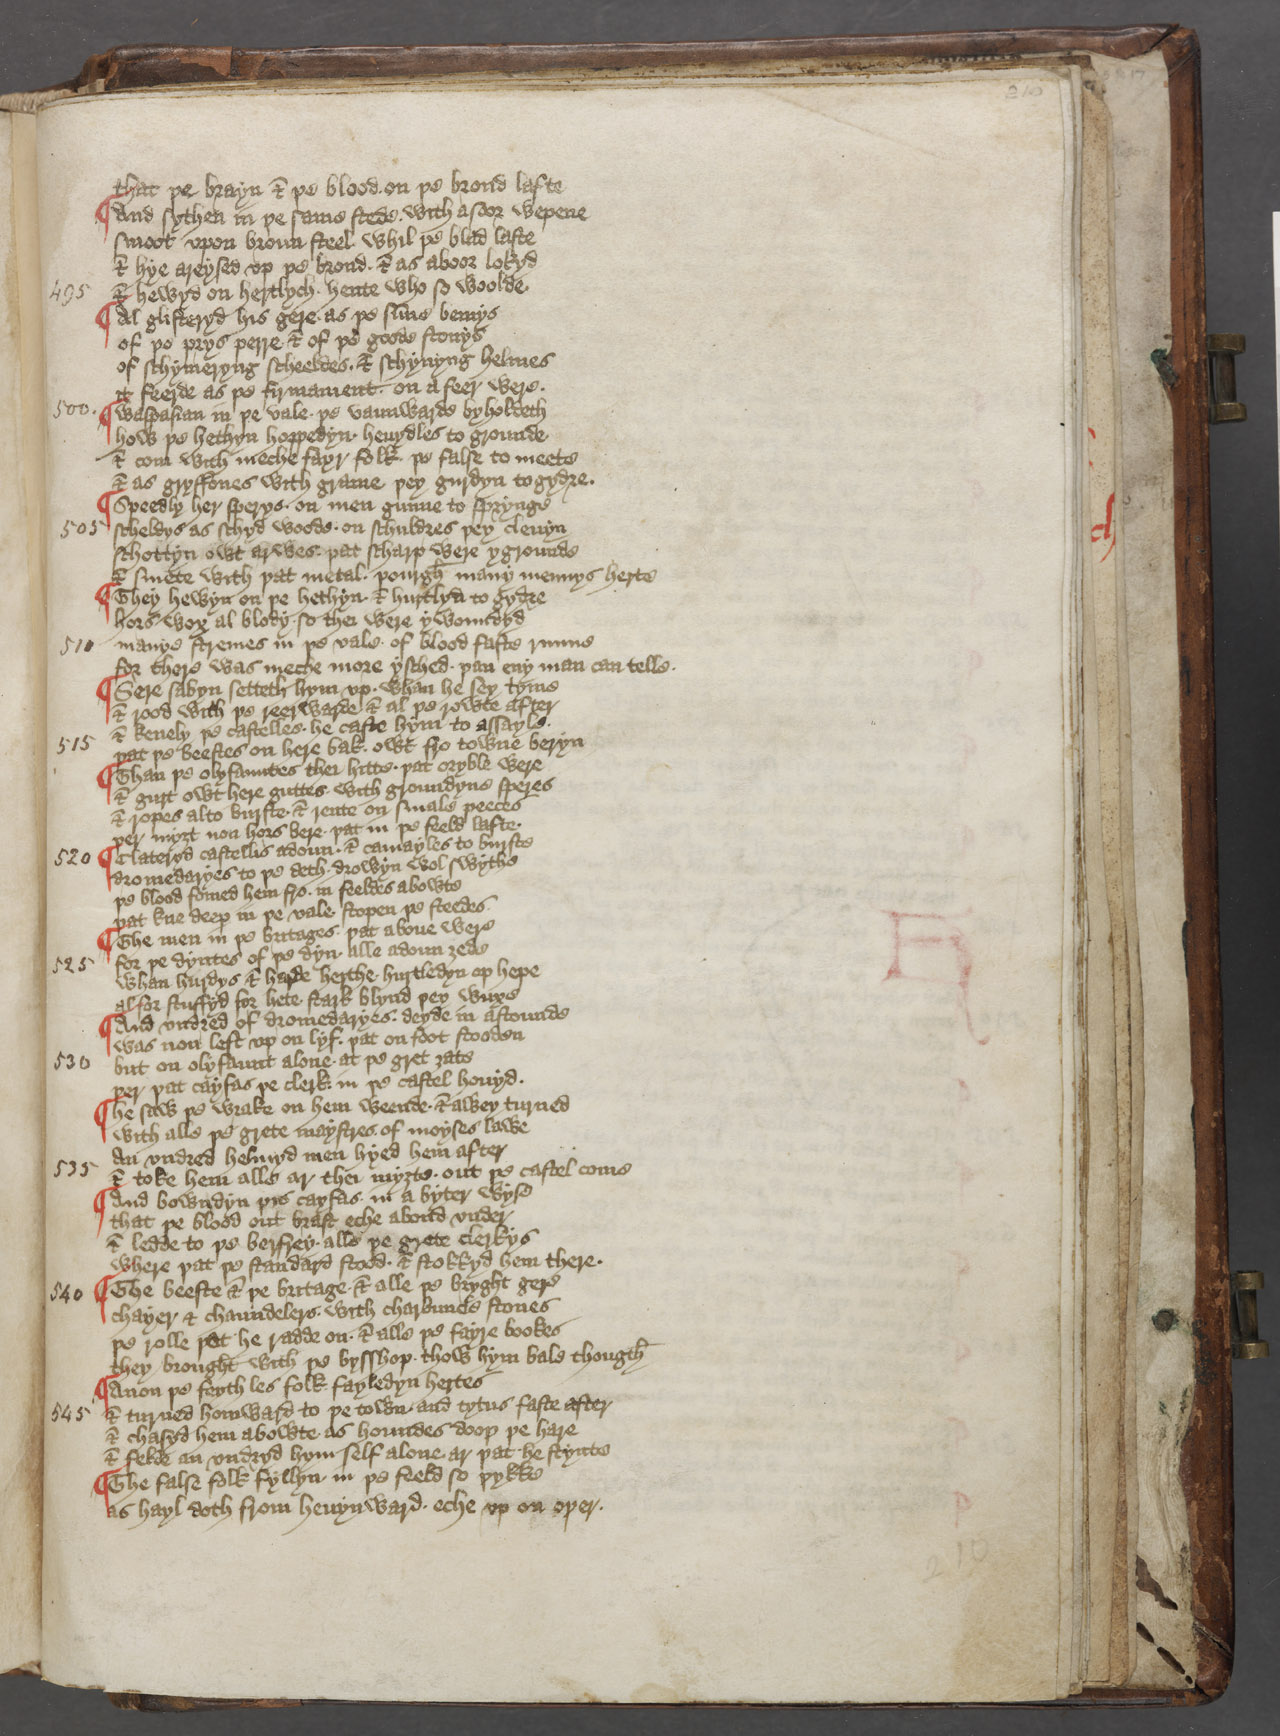 210
that þe brayn & þe blood · on þe brond lafte
¶ And sythen in þe same stede · with a soor wepene
smoot vpon broun steel · whil þe blad laste
& hye areysed vp þe brond · & as a boor lokyd
495 & hewyd on hertlych · hente who so woolde
¶ Al glisteryd his gere · as þe sune bemys
of þe prys perre & of þe goode stonys
of schymeryng scheeldes · & schynyng helmes
it feerde as þe firmament · on a feer were ·
500 · ¶ Waspasian in þe vale · þe vaunwarde byholdeth
how þe hethyn hoppedyn · heuydles to grounde
& com with meche fayr folk · þe false to meete
& as gryffones with grame þey gurdyn togydre ·
¶ Speedly her sperys · on men gunne to sprynge
505 scheldys as schyd woode · on schuldres þey cleuyn
schottyn owt arwes · þat scharp were y grounde
& smete with þat metal · þourgh many mennys herte
¶ They hewyn on þe hethyn · & hurtlyd to gydre
hors wox al blody · so thei were y woundyd
510 manye stremes in þe vale · of blood faste runne
for there was meche more y sched · þan eny man can telle ·
¶ Sere sabyn setteth hym vp · whan he sey tyme
& rood with þe reerwarde & al þe rowte after
& kenely þe castelles · he caste hym to assayle ·
515 þat þe beestes on here bak · owt fro towne beryn
¶ Than þe olyfauntes thei hitte · þat oryble were
& gurt owt here guttes · with groundyne speres
& ropes al to burste · & rente on smale peeces
þer myzt non hors bere · þat in þe feeld laste ·
520 ¶ Clateryd castellis adoun · & camayles to burste
dromedaryes to þe deth · drowyn wol swythe
þe blood fomed hem fro · in feeldes abowte
þat kne deep in þe vale · stopen þe steedes
¶ The men in þe britages · þat aboue were
525 for þe dyntes of þe dyn · alle adoun zede
whan hurdys & harde herthe · hurtledyn op hepe
al for stuffyd for hete · stark blynd þey wuxe
¶ And vndred of dromedaryes · deyde in a stounde
was non left vp on lyf · þat on foot stooden
530 but on olyfaunt alone · at þe gret zate
þer þat cayfas þe clerk · in þe castel houyd ·
¶ he saw þe wrake on hem weende · & awey turned
with alle þe grete maystres · of moyses lawe
An vndred helmyd men hyed hem after
535 & toke hem alle ar thei myzte · out þe castel come
¶ And bowndyn þis cayfas · in a byter wyse
that þe blood out brast eche a bond vnder
& ledde to þe berfrey · alle þe grete clerkys
where þat þe standard stood · & stokkyd hem there ·
540 ¶ The beeste & þe britage · & alle þe bryght gere
chayer & chaundelers · with charbuncle stones
þe rolle þat he radde on · & alle þe fayre bookes
they brought with þe bysshop · thow hym bale thougth
¶ Anon þe feyth les folk fayledyn hertes
545 & turned homward to þe town · and tytus faste after
& chasyd hem abowte as houndes doop þe hare
& felde an vndryd hym self alone ar þat he stynte
¶ The false folk fyllyn · in þe feeld so þykke
as hayl doth from heuynward · eche vp on oþer ·
210